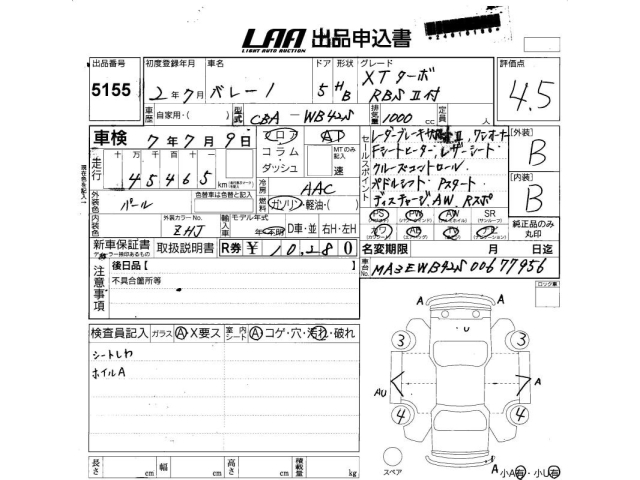 LAA 出品申込書
LIGHT AUTO AUCTION
出品番号 初度登録年月 車名 ドア 形状 グレード 評価点
5155 2年7月 バレーノ 5 HB XTターボ
RBSⅡ付 4.5
車歴 自家用・( ) 型式 CBA - WB42S 排気量 1000 cc 定員 人
車検 7年7月9日 フロア AT
コラム MTのみ記入
ダッシュ 速
走行 十万 万 千 百 十
45465 km
現在色を記入
セールスポイント
レーダーブレーキサポートⅡ,ワンオーナ
Fシートヒーター,レザーシート
クルーズコントロール
パドルシフト Pスタート
ディスチャージ,AW,Rスポ
【外装】 B
【内装】 B
冷房 AAC
燃料 ガソリン・軽油・( )
外装色 パール 色替車は色替と記入
内装色 外装カラーNo. ZHJ
輸入車 モデル年式 年 D車・並 右H・左H
PS PW AW SR
カワ AB TV ナビ
純正品のみ丸印
新車保証書 取扱説明書 R券 ¥ 10,280
名変期限 月 日迄
車台No. MA3EWB42S00677956
注意事項 後日品【
不具合箇所等
ロック車
検査員記入 ガラス A X要ス 室内シート A コゲ・穴・汚れ・破れ
シートしわ
ホイルA
A A
U
3 3
AU A
4 4
スペア
A 小A有・小U有
長さ cm 幅 cm 高さ cm 積載量 kg